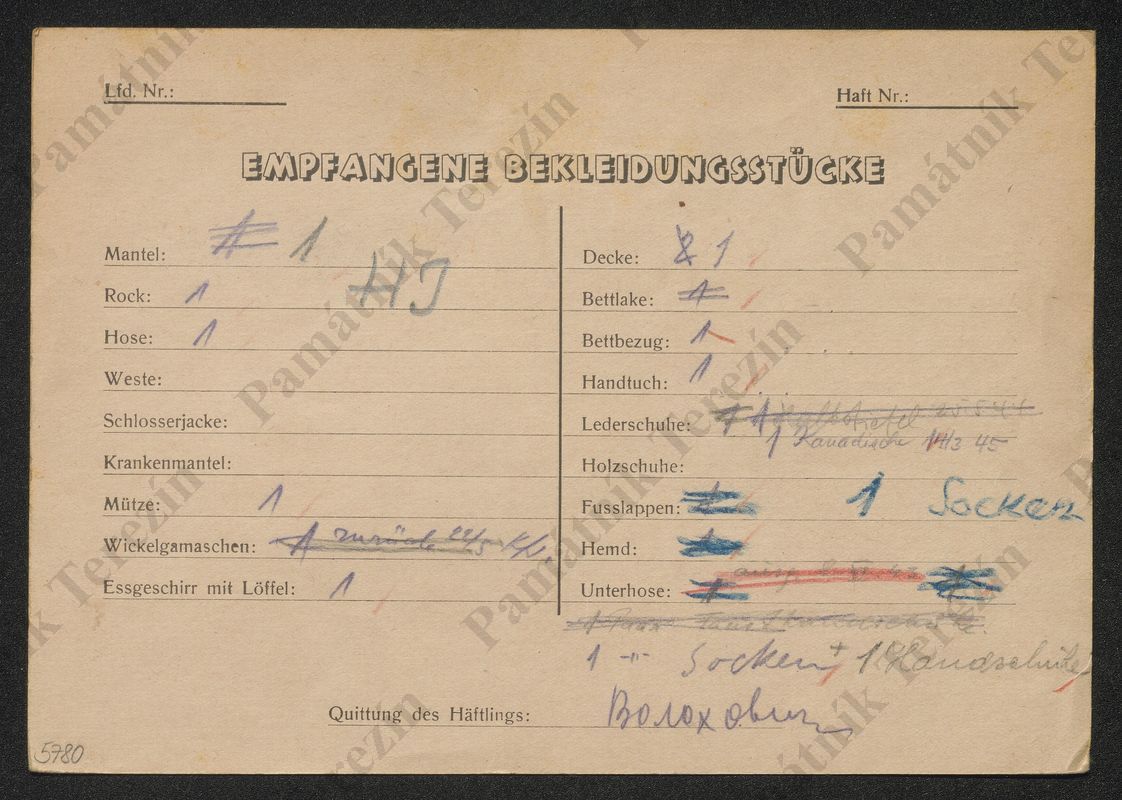 Lfd. Nr.:
Haft Nr.:
EMPFANGENE BEKLEIDUNGSSTÜCKE
Mantel: 1 1
Rock: 1
HJ
Hose: 1
Weste:
Schlosserjacke:
Krankenmantel:
Mütze: 1
Wickelgamaschen: 1 zurück 22/5
Essgeschirr mit Löffel: 1
Decke: 2 1
Bettlake: 1
Bettbezug: 1
Handtuch: 1
Lederschuhe: 1 1
1 Kanadische 14/3 45
Holzschuhe:
Fusslappen: 1 Socken
Hemd:
Unterhose: 1
1 Paar
1 -"- Socken + 1 Handschuhe
Quittung des Häftlings: Волохович
5780
Památník Terezín